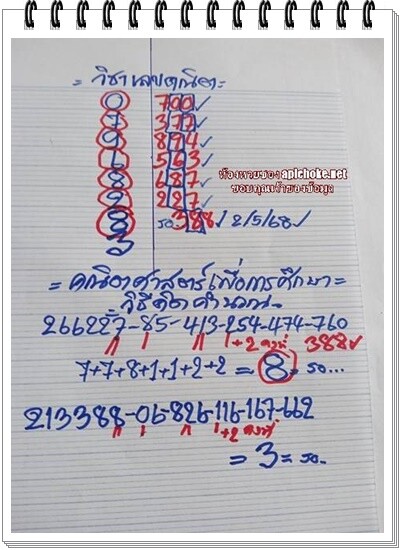 = วิชาเลขคณิต =
0 700 ✓
7 377 ✓
9 894 ✓
6 563 ✓
8 687 ✓
2 227 ✓
8 รอ 388 ✓ 2/5/68 ✓
3
ห้องหวยซอง apichoke.net
ขอบคุณเจ้าของข้อมูล
= คณิตศาสตร์เพื่อการศึกษา =
วิธีคิดคำนวณ
266227-85-413-254-474-760
+2 คงที่ 388 ✓
7+7+8+1+1+2+2 = 8 = รอ...
213388-06-826-116-167-662
+2 คงที่
= 3 = รอ..